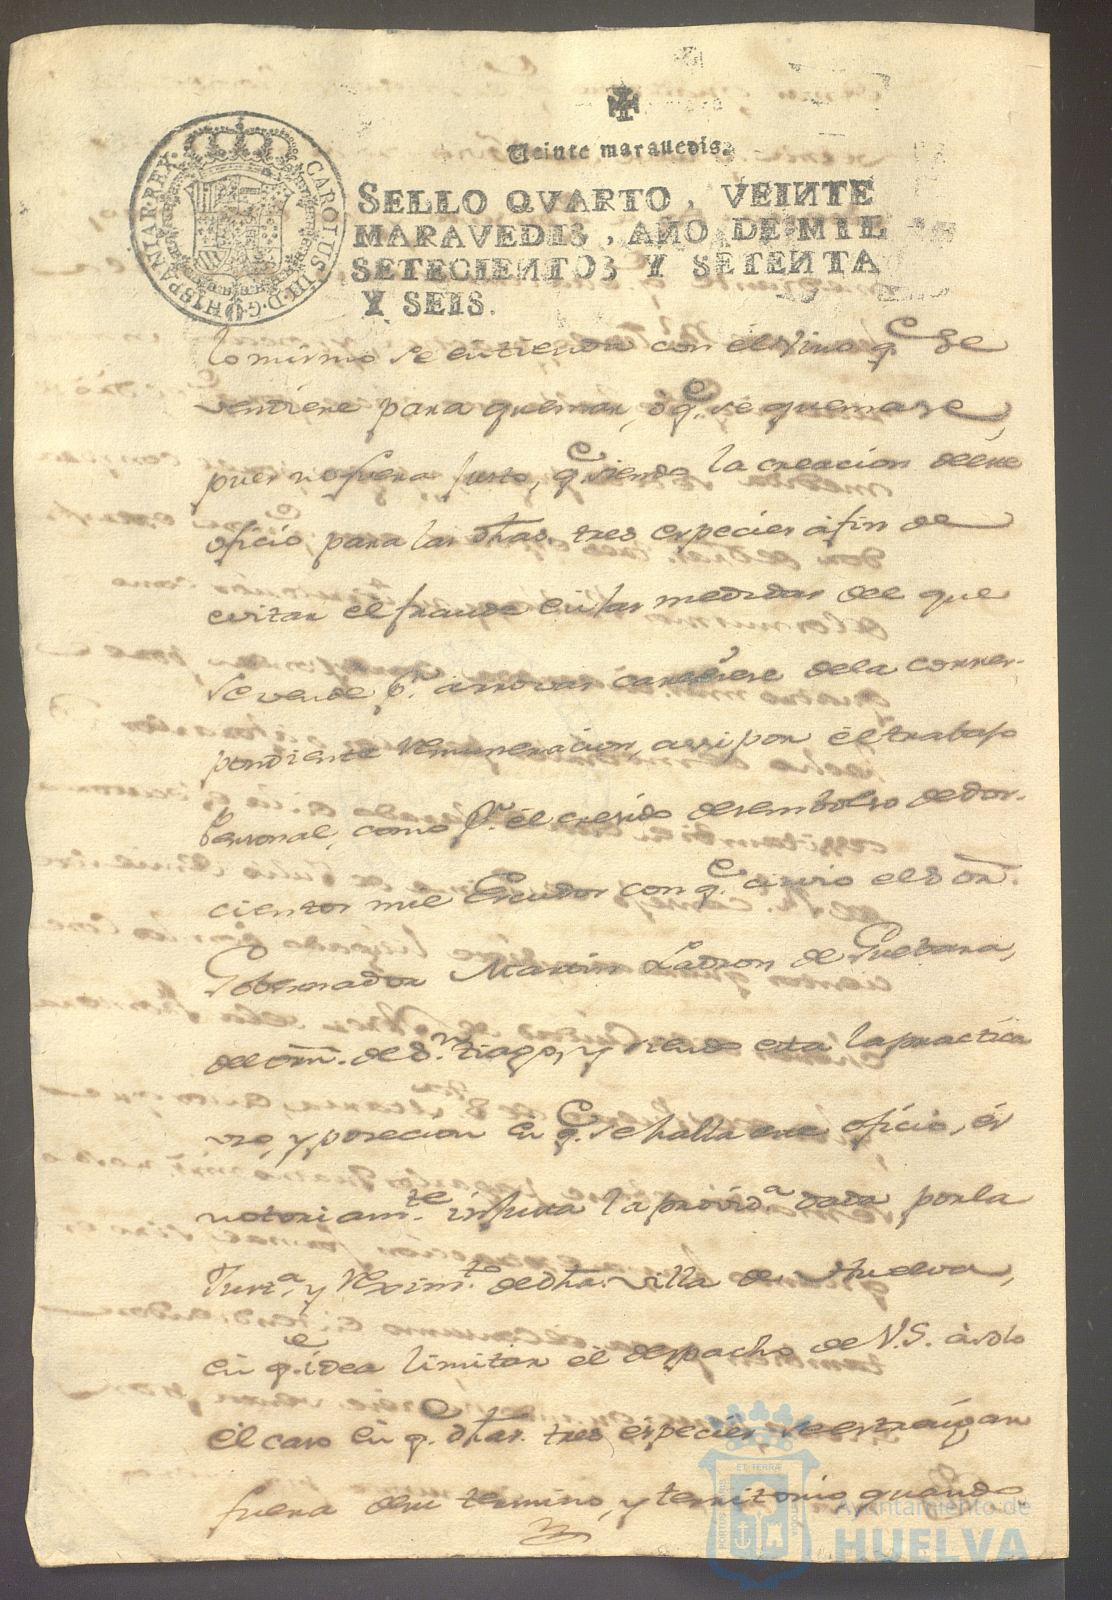 Veinte marauedis.
SELLO QVARTO, VEINTE
MARAVEDIS, AÑO DE MIL
SETECIENTOS Y SETENTA
Y SEIS.
CAROLUS III D G HISPANIAR REX
lo mismo se entienda con el Vino q.e se
vendiere para quemar, ó q.e se quemase,
pues no fuera justo, q.e siendo la creacion de ese
oficio para las dhas. tres especies afin de
evitar el fraude en las medidas del que
se vende p.r arrovas careciese dela corres-
pondiente remuneracion, assi por el trabajo
personal, como p.r el cresido desembolso de dos-
cientos mil Escudos con q.e sirvio el
Gobernador Martin Ladron de Guebara,
del orn. de S.n tiago, y siendo esta la practica
uso, y posecion en q.e se halla ese oficio, es
notoriam.te injusta la provid.a dada por la
Just.a y Rexim.to de dha. villa de Huelva,
en q.e idea limitar el despacho de V.S. à solo
el caso en q.e dhas. tres especies se estraigan
fuera de su termino, y territorio, quando
Ayuntamiento de
HUELVA